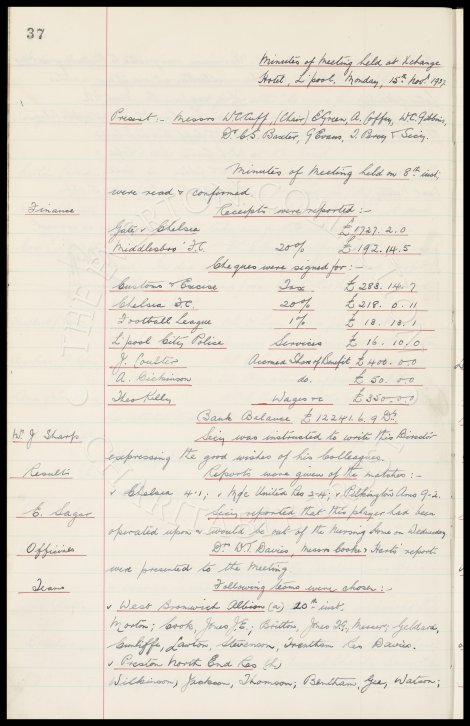 37
Minutes of Meeting held at Xchange
Hotel, L'pool. Monday, 15th Novr 1937.
Present:- Messrs W.C. Cuff, (Chair) E. Green, A. Coffey, W.C. Gibbins,
Dr. C.S. Baxter, G. Evans, & Secy.
Minutes of Meeting held on 8th inst;
were read & confirmed
Finance Receipts were reported:-
Gate v Chelsea £1727.2.0
Middlesbro' F.C. 20% £192.14.5
Cheques were signed for:-
Customs & Excise Tax £283.14.7
Chelsea F.C. 20% £218.0.11
Football League 1% £13.13.1
L'pool City Police Services £16.10.0
J. Coulter Accrued Share of Benefit £400.0.0
A. Dickinson do. £50.0.0
Theo Kelly Wages &c £350.0.0
Bank Balance £12241.6.9 Dr.
Wm J Sharp Secy was instructed to write this Director
expressing the good wishes of his colleagues.
Results Reports were given of the matches:-
v Chelsea 4-1; v N/c United Res 2-4; v Pilkington's Ans 9-2.
E. Sagar Secy reported that this player had been
operated upon & would be out of the Nursing Home on Wednesday
Officials Dr. D.T. Davies, Messrs Cooke & Hart's report
were presented to the Meeting.
Teams Following teams were chosen:-
v West Bromwich Albion (a) 20th inst.
Morton; Cook, Jones J.E.; Britton, Jones T.G., Mercer; Geldard,
Cunliffe, Lawton, Stevenson, Trentham Res Davies.
v Preston North End Res (h)
Wilkinson; Jackson, Thomson; Bentham, Gee, Watson;